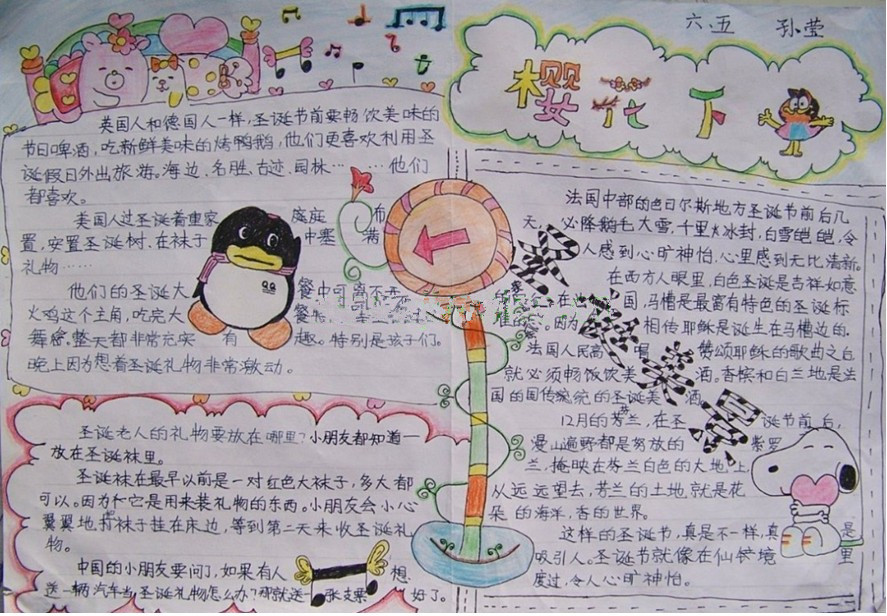 六、五 孙莹
樱花下
英国人和德国人一样,圣诞节前要畅饮美味的
节日啤酒,吃新鲜美味的烤鸭鹅,他们更喜欢利用圣
诞假日外出旅游,海边、名胜、古迹、园林……他们
都喜欢。
美国人过圣诞着重家庭庭布
置,安置圣诞树.在袜子中塞满
礼物……
他们的圣诞大餐中可离不开
火鸡这个主角,吃完大餐
舞會,整天都非常充实有趣。特别是孩子们。
晚上因为想着圣诞礼物非常激动。
圣诞老人的礼物要放在哪里?小朋友都知道一
放在圣诞袜里。
圣诞袜在最早以前是一对红色大袜子,多大都
可以。因为它是用来装礼物的东西。小朋友会小心
翼翼地将袜子挂在床边,等到第二天来收圣诞礼
物。
中国的小朋友要问了,如果有人想
送一辆汽车当圣诞礼物怎么办?那就送一张支票好了。
法国中部的色日尔斯地方圣诞节前后几
天,必降鹅毛大雪,千里冰封,白雪皑皑,令
人感到心旷神怡,心里感到无比清新。
在西方人眼里,白色圣诞是吉祥如意
在国,马槽是最富有特色的圣诞标
因为相传耶稣是诞生在马槽边的.
法国人民高唱赞颂耶稣的歌曲之后
就必须畅饭饮美酒,香槟和白兰地是法
国的国传统统的圣诞美酒
12月的芬兰,在圣诞节前后,
漫山遍野都是努放的紫罗
兰,掩映在芬兰白色的大地上,
从远远望去,芬兰的土地就是花
朵的海洋,香的世界。
这样的圣诞节,真是不一样,真是
吸引人。圣诞节就像在仙镜境里
度过,令人心旷神怡。